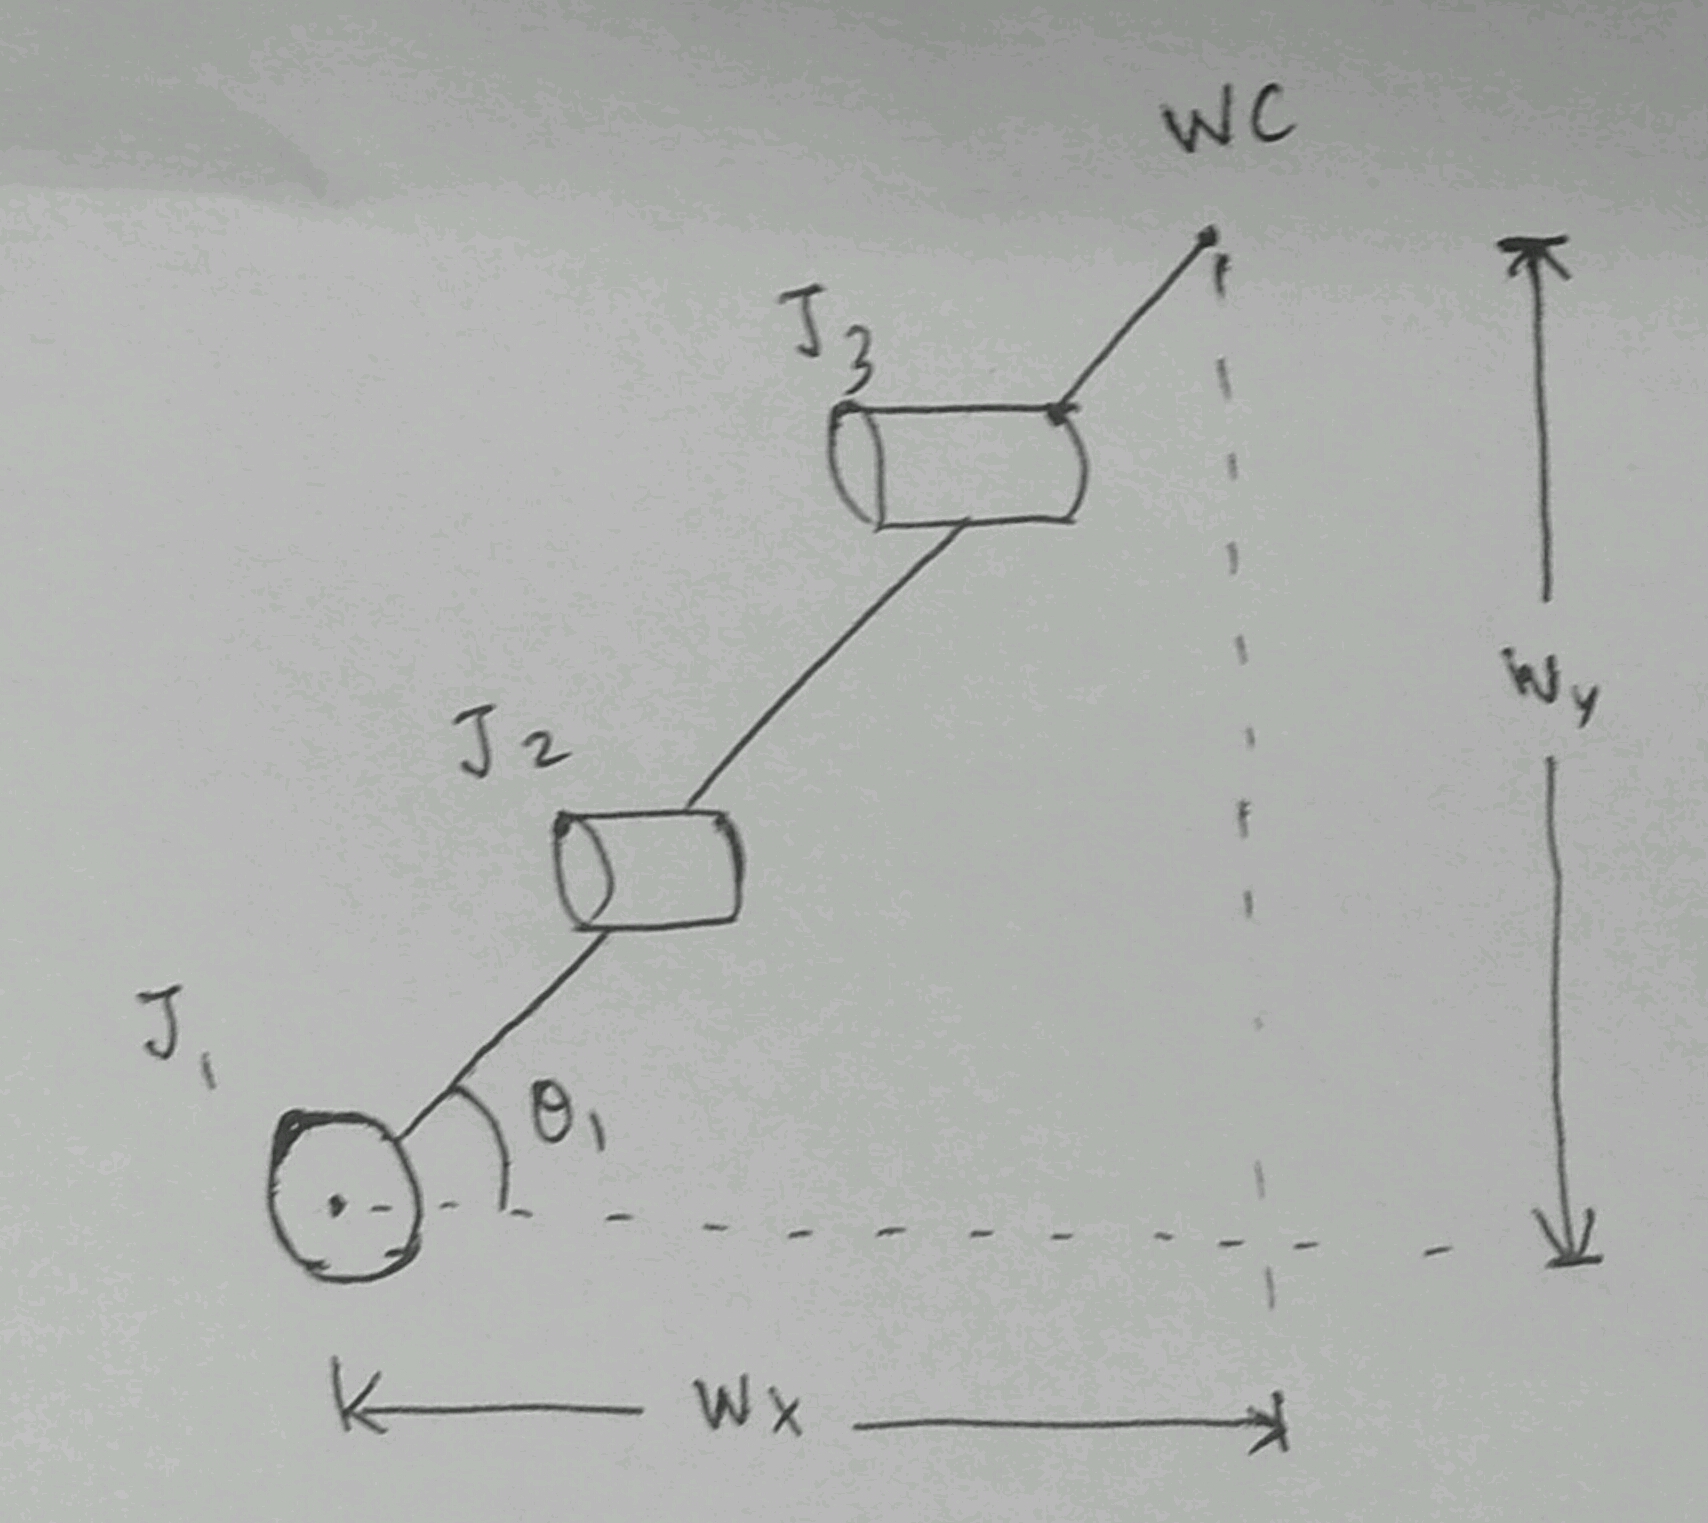 WC
J3
Wy
J2
J1
θ1
Wx